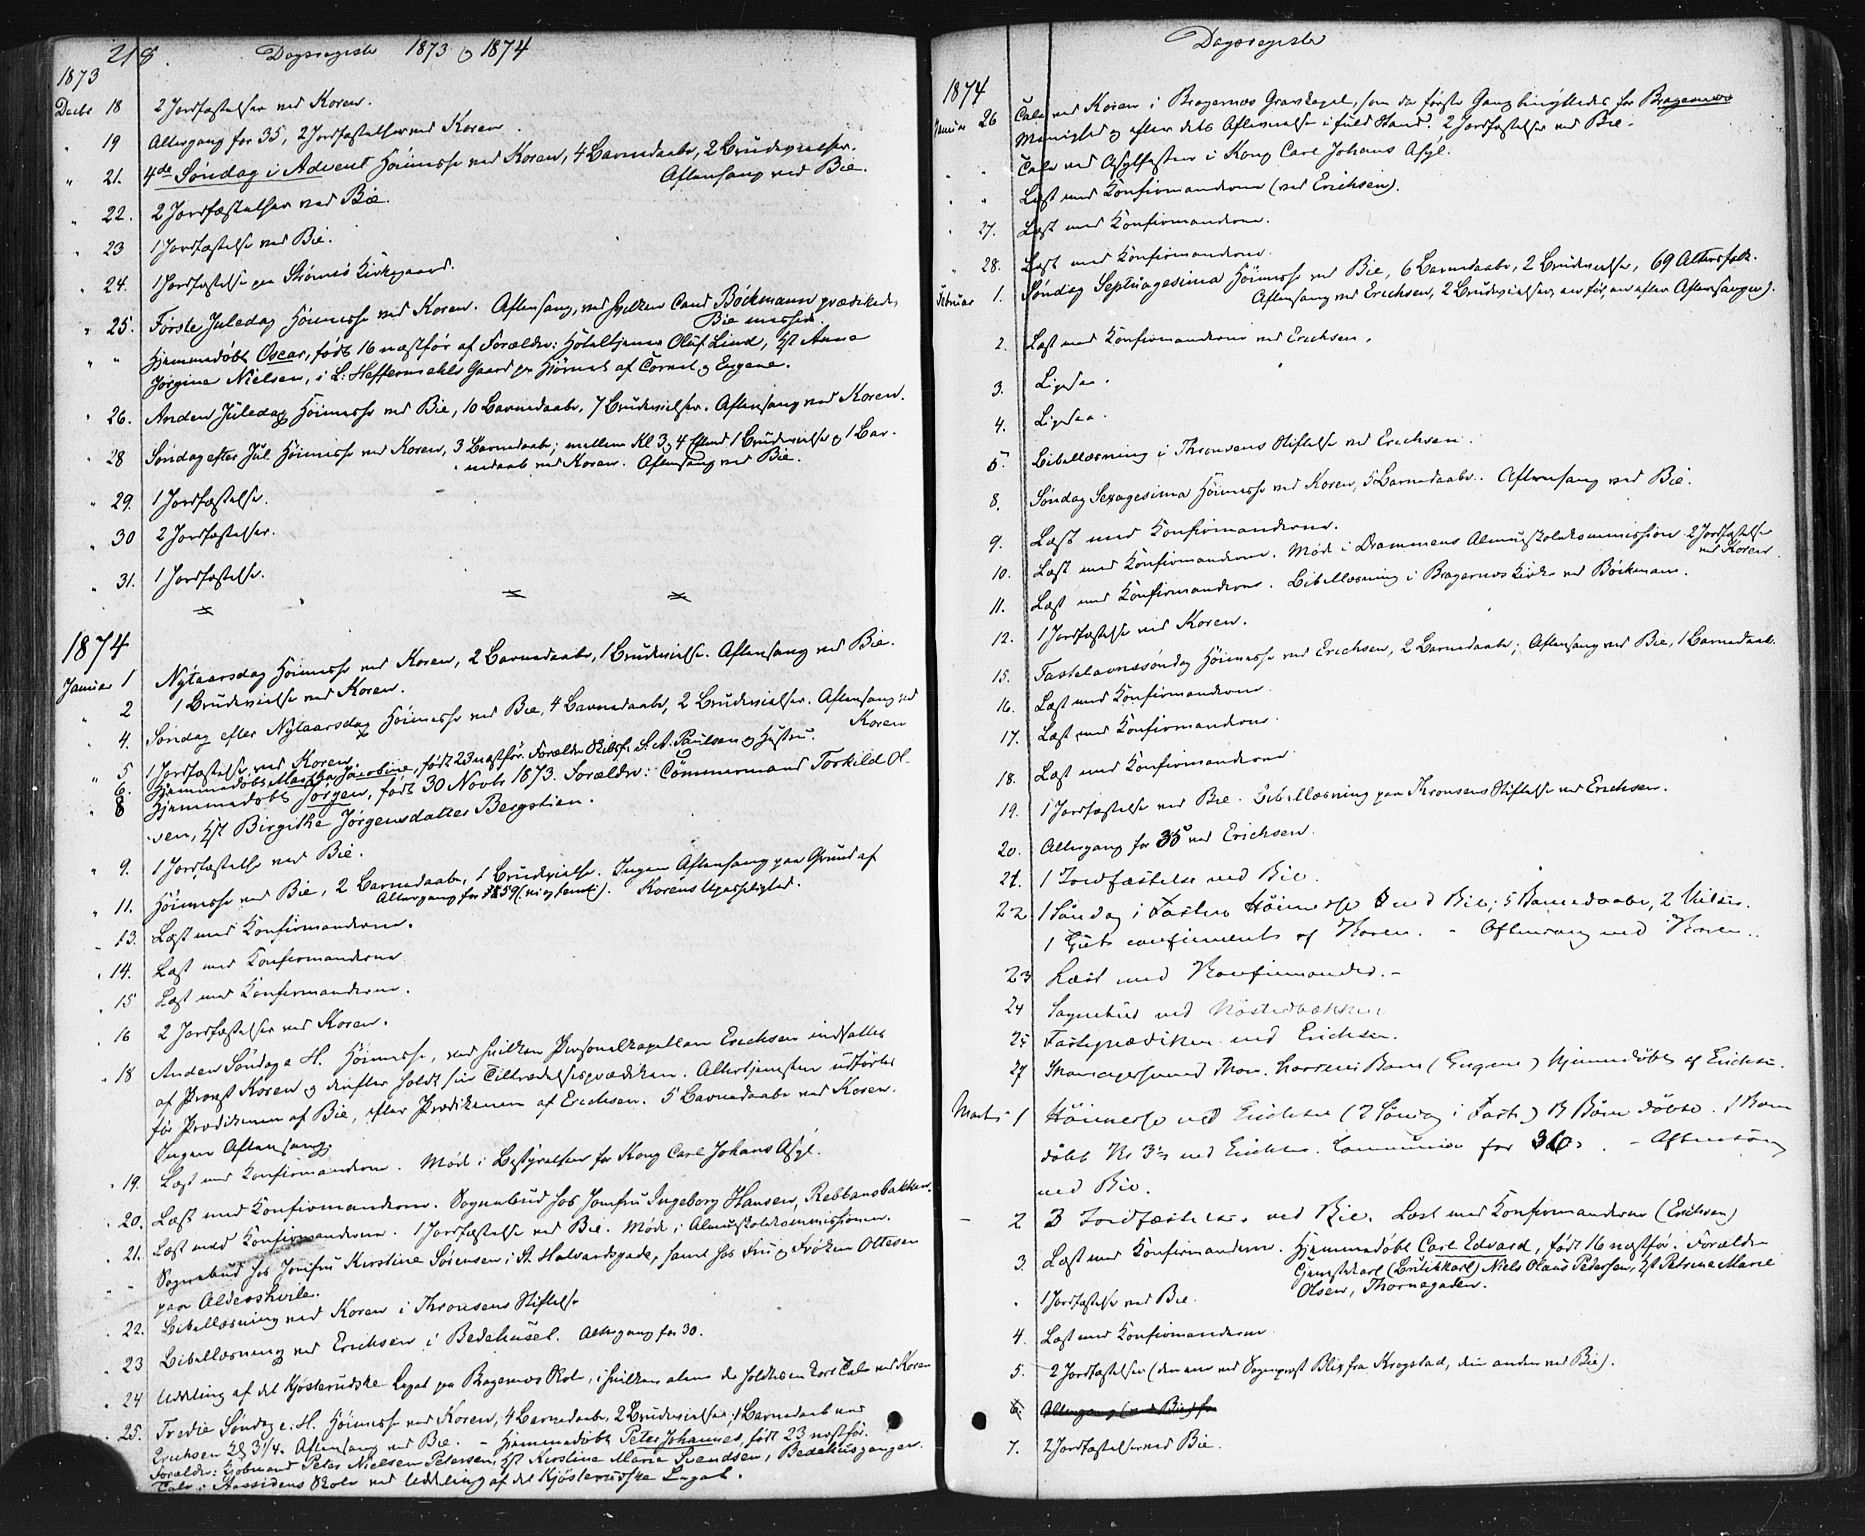 218 Dagsregister 1873 og 1874
1873
Decbr 18 2 Jordfæstelser ved Koren.
" 19 Altergang for 35, 2 Jordfæstelser ved Koren.
" 21. 4de Søndag i Advent Höimesse ved Koren, 4 Barnedaabe, 2 Brudevielser.
Aftensang ved Bie.
" 22. 2 Jordfæstelser ved Bie.
" 23 1 Jordfæstelse ved Bie.
" 24. 1 Jordfæstelse paa Strömsö Kirkegaard.
" 25. Förste Juledag Höimesse ved Koren. Aftensang, ved hvilken Cand Böckmann prædikede,
Bie messede.
" " Hjemmedöbt Oscar, födt 16 næstfør af Forældre: Hotelltjener Oluf Lind, Hst Anna
Jörgine Nielsen, i L: Heffermehls Gaard paa Hjörnet af Cornet og Eugene.
" 26. Anden Juledag Höimesse ved Bie, 10 Barnedaabe, 7 Brudevielser. Aftensang ved Koren.
" 28 Søndag efter Jul Höimesse ved Koren, 3 Barnedaabe; mellem Kl 3 og 4 Eftmd 1 Brudevielse og 1 Bar-
nedaab ved Koren. Aftensang ved Bie.
" 29. 1 Jordfæstelse.
" 30 2 Jordfæstelser.
" 31. 1 Jordfæstelse.
1874
Januar 1 Nytaarsdag Höimesse ved Koren, 2 Barnedaabe, 1 Brudevielse. Aftensang ved Bie.
" 2 1 Brudevielse ved Koren.
" 4. Søndag efter Nytaarsdag Höimesse ved Bie, 4 Barnedaabe, 2 Brudevielser. Aftensang ved
Koren
" 5 1 Jordfæstelse ved Koren.
6. Hjemmedöbt Martha Jacobine, födt 23 næstför. Forældre Skibsf. S. A. Paulsen og Hustru.
" 8 Hjemmedöbt Jörgen, födt 30 Novbr 1873. Forældre: Tömmermand Torkild Ol-
sen, Hst Birgithe Jörgensdatter Bergstien.
" 9. 1 Jordfæstelse ved Bie.
" 11. Höimesse ved Bie, 2 Barnedaabe, 1 Brudevielse. Ingen Aftensang paa Grund af
Altergang for 59 (ni og femti). Korens Upasselighed.
" 13. Læst med Konfirmanderne.
" 14. Læst med Konfirmanderne
" 15 Læst med Konfirmanderne.
" 16 2 Jordfæstelser ved Koren.
" 18 Anden Søndag e. H. Höimesse, ved hvilken Personelkapellan Erichsen indsattes
af Provst Koren og derefter holdt sin Tiltrædelsesprædiken. Altertjenesten udförtes
för Prædikenen af Bie, efter Prædikenen af Erichsen. 5 Barnedaabe ved Koren.
Ingen Aftensang.
" 19. Læst med Konfirmanderne. Möde i Bestyrelsen for Kong Carl Johans Asyl.
" 20. Læst med Konfirmanderne. Sognebud hos Jomfru Ingeborg Hansen, Rebbansbakken.
" 21. Læst med Konfirmanderne. 1 Jordfæstelse ved Bie. Möde i Almueskolekommissionen.
" - Sognebud hos Jomfru Kirstine Sörensen i St. Halvardsgade, samt hos Fru og Fröken Ottesen
paa Aldershvile.
" 22. Bibellæsning ved Koren i Thronsens Stiftelse
" 23 Bibellæsning ved Erichsen i Bedehuset. Altergang for 30.
" 24 Uddeling af det Kjösterudske Legat paa Bragernes Skole, i hvilken alene da holdtes en kort Tale ved Koren
" 25. Tredie Søndag e. H. Höimesse ved Koren, 4 Barnedaabe, 2 Brudevielser, 1 Barnedaab ved
Erichsen Kl 3 1/4. Aftensang ved Bie. - Hjemmedöbt Peter Johannes, födt 23 næstför.
Forældre: Kjöbmand Peter Nielsen Petersen, Hst Kirstine Marie Svendsen, Bedehusgangen.
Tale i Aassidens Skole ved Uddeling af det Kjösterudske Legat.
Dagsregister
1874
Januar 26 Tale ved Koren i Bragernes Gravkapel, som da förste Gang benyttedes for Bragernes
Menighed og efter dets Aflevering i fuld Stand. 2 Jordfæstelser ved Bie.
" " Tale ved Asylfesten i Kong Carl Johans Asyl.
" " Læst med Konfirmanderne (ved Erichsen).
" 27. Læst med Konfirmanderne.
" 28. Læst med Konfirmanderne.
Februar 1. Søndag Septuagesima Höimesse ved Bie, 6 Barnedaabe, 2 Brudevielser, 69 Altersfolk.
Aftensang ved Erichsen, 2 Brudevielser, en för, en efter Aftensangen).
2. Læst med Konfirmanderne ved Erichsen.
3. Ligesaa.
4. Ligesaa.
5. Bibellæsning i Thronsens Stiftelse ved Erichsen.
8. Søndag Sexagesima Höimesse ved Koren, 5 Barnedaabe. Aftensang ved Bie.
9. Læst med Konfirmanderne.
10. Læst med Konfirmanderne. Möde i Drammens Almueskolekommission. 2 Jordfæstelse
ved Koren.
11. Læst med Konfirmanderne. Bibellæsning i Bragernes Kirke ved Böckmann.
12. 1 Jordfæstelse ved Koren.
15. Fastelavnssöndag Höimesse ved Erichsen, 2 Barnedaabe; Aftensang ved Bie, 1 Barnedaab.
16. Læst med Konfirmanderne
17. Læst med Konfirmanderne.
18. Læst med Konfirmanderne
19. 1 Jordfæstelse ved Bie. Bibellæsning paa Thronsens Stiftelse ved Erichsen.
20. Altergang for 35 ved Erichsen.
21. 1 Jordfæstelse ved Bie.
22 1 Söndag i Fasten Höimesse ved Bie; 5 Barnedaabe, 2 Vielser.
1 Gut confirmeret af Koren. - Aftensang ved Koren.
23 Læst med Konfirmander. -
24 Sognebud ved Nöstedbækken
25 Fasteprædiken ved Erichsen.
27 Barn (Eugene) hjemmedöbt af Erichsen.
Marts 1 Höimesse ved Erichsen (2 Söndag i Faste) Börn döbte. 1 Barn
döbt Kl 3 1/2 ved Erichsen. Communion for 36. - Aftensang
ved Bie.
- 2 3 Jordfæstelser ved Bie. Læst med Konfirmanderne (Erichsen)
3 Læst med Konfirmanderne. Hjemmedöbt Carl Edvard, födt 16 næstför. Forældre
Tjenestekarl (Butikkarl) Niels Olaus Petersen, Hst Petrine Marie
Olsen, Thornegaden.
" 1 Jordfæstelse ved Bie.
4. Læst med Konfirmanderne
5. 2 Jordfæstelser (den ene ved Sogneprest Blix fra Krogstad, den anden ved Bie).
6. Altergang (ved Bie) for
7. 2 Jordfæstelser ved Bie.